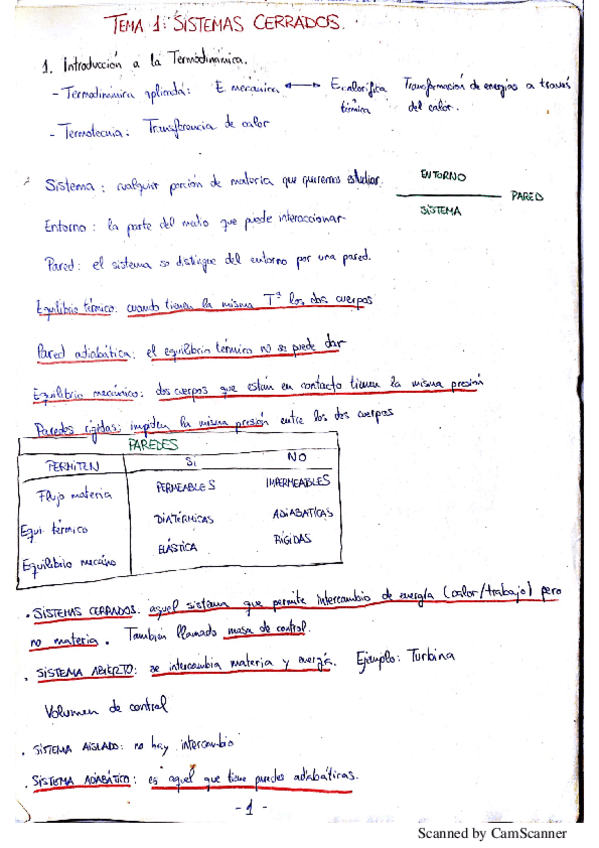 TEMA 1: SISTEMAS CERRADOS.
1. Introducción a la Termodinámica.
- Termodinámica aplicada: E mecánica ⟷ E calorífica Transformación de energías a través
térmica del calor.
- Termotecnia: Transferencia de calor
Sistema: cualquier porción de materia que queremos estudiar.
ENTORNO
PARED
SISTEMA
Entorno: la parte del medio que puede interaccionar
Pared: el sistema se distingue del entorno por una pared.
Equilibrio térmico: cuando tienen la misma Tª los dos cuerpos
Pared adiabática: el equilibrio térmico no se puede dar
Equilibrio mecánico: dos cuerpos que están en contacto tienen la misma presión
Paredes rígidas: impiden la misma presión entre los dos cuerpos
PAREDES
PERMITEN SI NO
Flujo materia PERMEABLES IMPERMEABLES
Equi. térmico DIATÉRMICAS ADIABATICAS
Equilibrio mecánico ELÁSTICA RÍGIDAS
. SISTEMAS CERRADOS: aquel sistema que permite intercambio de energía (calor/trabajo) pero
no materia. También llamado masa de control.
. SISTEMA ABIERTO: se intercambia materia y energía. Ejemplo: Turbina
Volumen de control
. SISTEMA AISLADO: no hay intercambio
. SISTEMA ADIABÁTICO: es aquel que tiene paredes adiabáticas.
- 1 -
Scanned by CamScanner